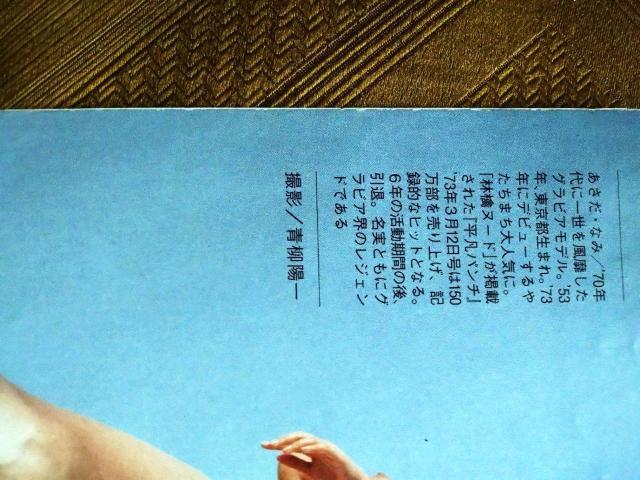 あさだ・なみ／'70年
代に一世を風靡した
グラビアモデル。'53
年、東京都生まれ。'73
年にデビューするや
たちまち大人気に。
「林檎ヌード」が掲載
された『平凡パンチ』
'73年3月12日号は150
万部を売り上げ、記
録的なヒットとなる。
6年の活動期間の後、
引退。名実ともにグ
ラビア界のレジェン
ドである
撮影／青柳陽一